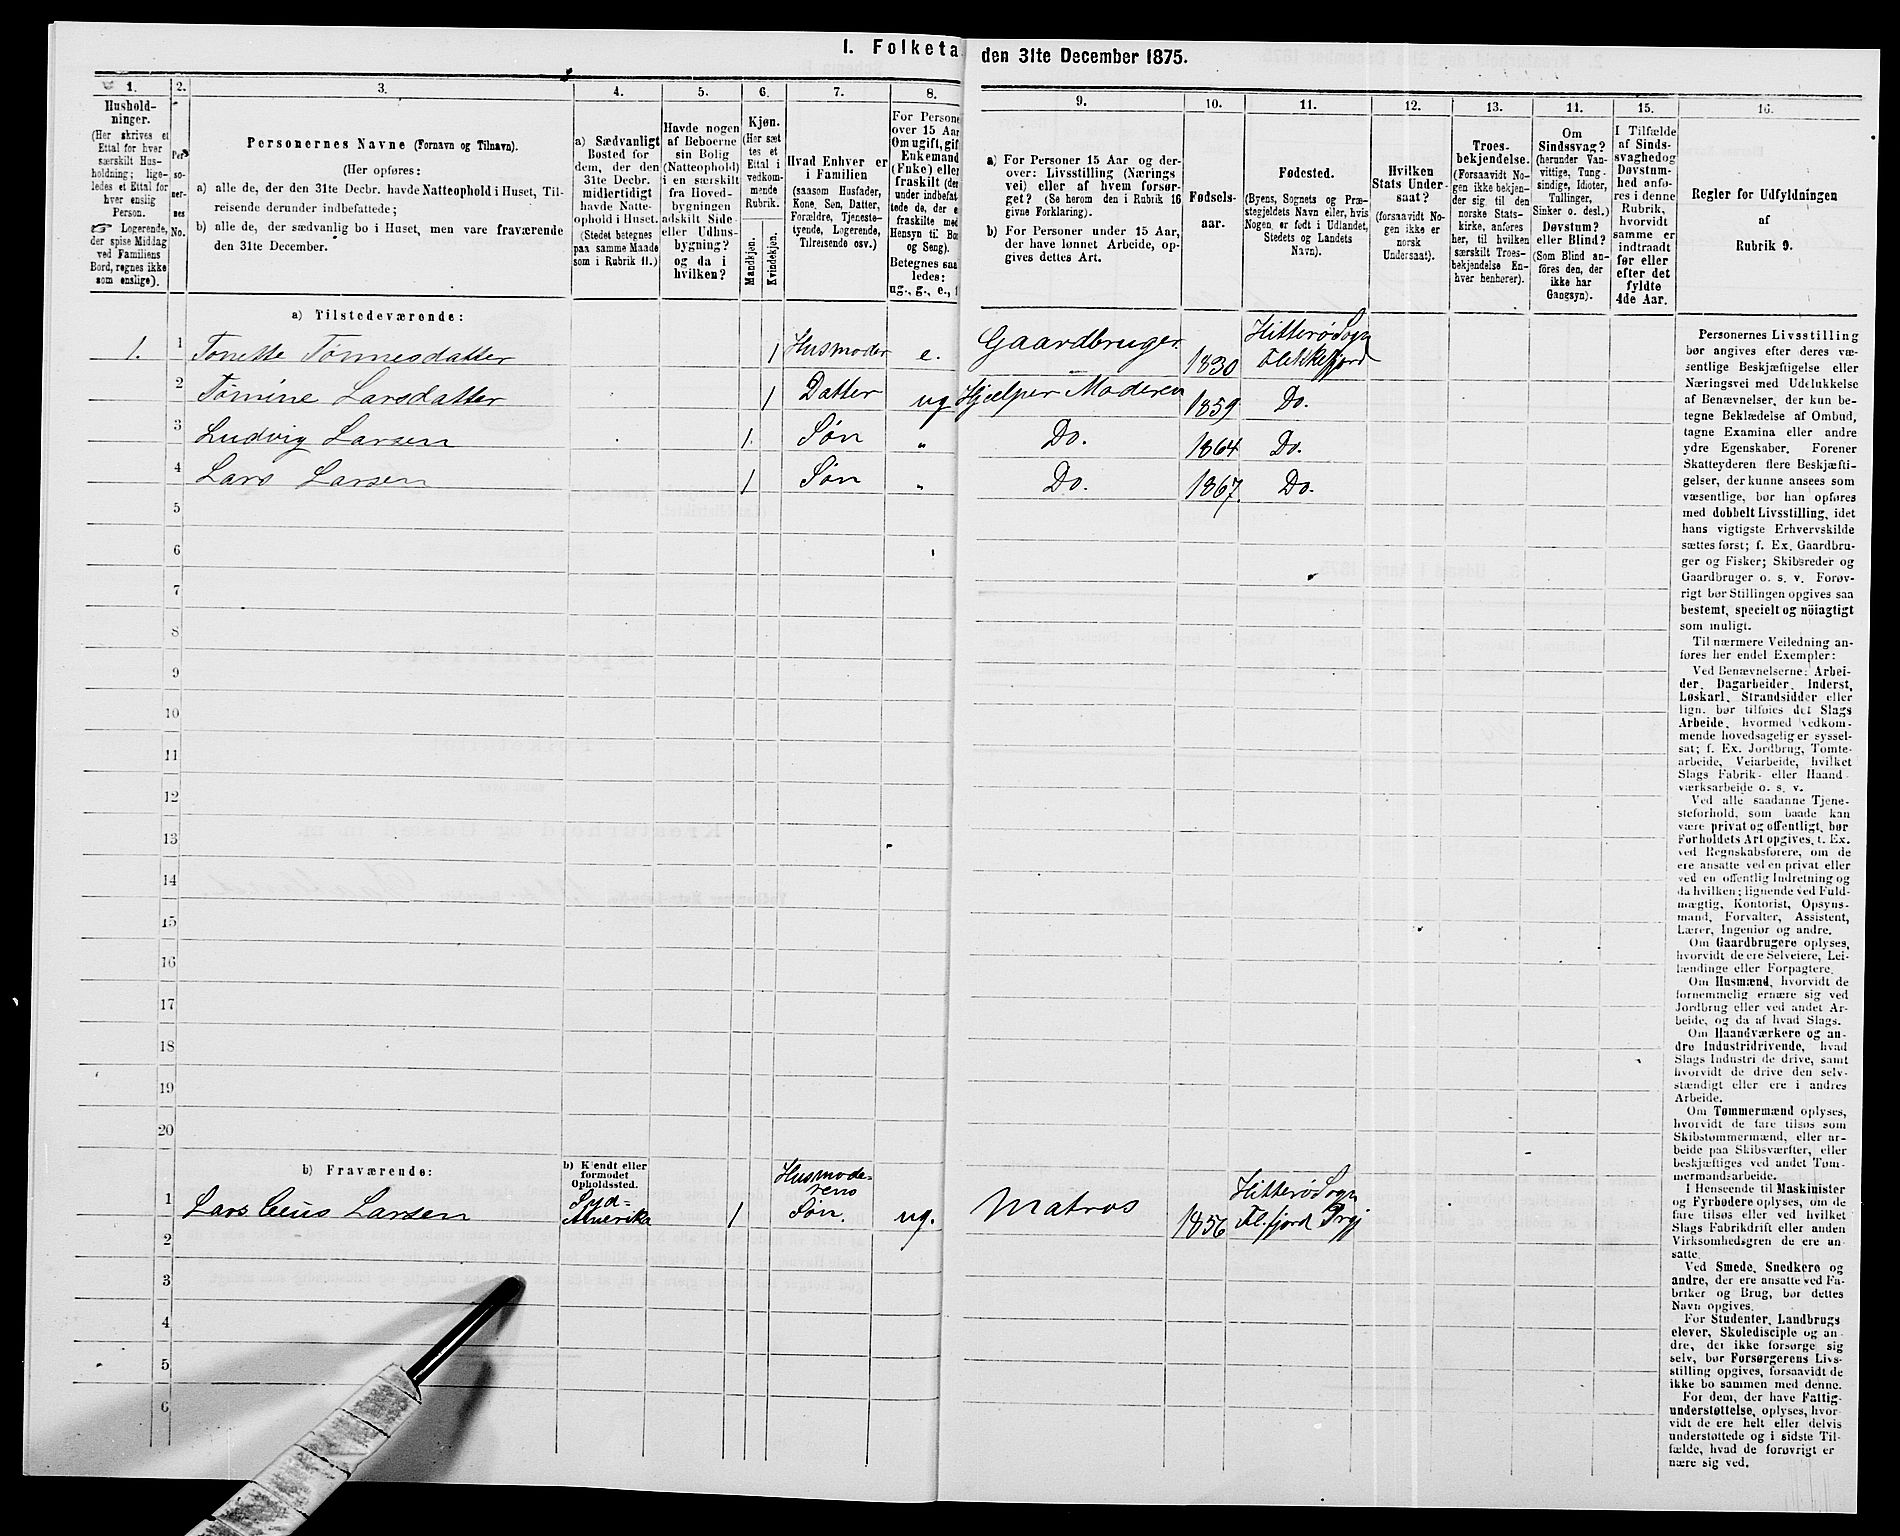 I. Folketæ
den 31te December 1875.
1.
2.
3.
4.
5.
6.
7.
8.
9.
10.
11.
12.
13.
11.
15.
16.
Hushold-
ninger.
(Her skrives et
Ettal for hver
særskilt Hus-
holdning; lige-
ledes et Ettal for
hver enslig
Person.
Logerende,
der spise Middag
ved Familiens
Bord, regnes ikke
som enslige).
Per-
so-
ner-
nes
No.
Personernes Navne (Fornavn og Tilnavn).
(Her opføres:
a) alle de, der den 31te Decbr. havde Natteophold i Huset, Til-
reisende derunder indbefattede;
b) alle de, der sædvanlig bo i Huset, men vare fraværende
den 31te December.
a) Sædvanligt
Bosted for
dem, der den
31te Decbr.
midlertidigt
havde Natte-
ophold i Huset.
(Stedet betegnes
paa samme Maade
som i Rubrik 11.)
Havde nogen
af Beboerne
sin Bolig
(Natteophold)
i en særskilt
fra Hoved-
bygningen
adskilt Side-
eller Udhus-
bygning?
og da i
hvilken?
Kjøn.
(Her sæt
tes et
Ettal i
vedkom-
mende
Rubrik.
Mandkjøn.
Kvindekjøn.
Hvad Enhver er
i Familien
(saasom Husfader,
Kone, Søn, Datter,
Forældre, Tjeneste-
tyende, Logerende,
Tilreisende osv.)
For Persone
over 15 Aar
Om ugift, gif
Enkemand
(Enke) elle
fraskilt (de
under indbefat
tede de, der e
fraskilte med
Hensyn til Bo
og Seng).
Betegnes saa
ledes:
ug., g., e., f
a) For Personer 15 Aar og der-
over: Livsstilling (Nærings
vei) eller af hvem forsør-
get? (Se herom den i Rubrik 16
givne Forklaring).
b) For Personer under 15 Aar,
der have lønnet Arbeide, op-
gives dettes Art.
Fødsels-
aar.
Fødested.
(Byens, Sognets og Præ-
stegjeldets Navn eller, hvis
Nogen er født i Udlandet,
Stedets og Landets
Navn).
Hvilken
Stats Under-
saat?
(forsaavidt No-
gen ikke er
norsk
Undersaat).
Troes-
bekjendelse.
(Forsaavidt No-
gen ikke bekjen-
der sig til den
norske Stats-
kirke, anføres
her, til hvilken
særskilt Troes-
bekjendelse En-
hver henhører).
Om
Sindssvag?
(herunder Van-
vittige, Tung-
sindige, Idioter,
Tullinger,
Sinker o. desl.)
Døvstum?
eller Blind?
(Som Blind an-
føres den, der
ikke har
Gangsyn).
I Tilfælde
af Sinds-
svaghedog
Døvstum-
hed anfø-
res i denne
Rubrik,
hvorvidt
samme er
indtraadt
før eller
efter det
fyldte
4de Aar.
Regler for Udfyldningen
af
Rubrik 9.
a) Tilstedeværende:
1. 1 Tonette Tønnesdatter 1 Husmoder e. Gaardbruger 1830 Hitterø Sogn
Flekkefjord
2 Tomine Larsdatter 1 Datter ug Hjælper Moderen 1859 Do.
3 Ludvig Larsen 1. Søn „ Do. 1864 Do.
4 Lars Larsen 1 Søn „ Do. 1867. Do.
5
6
7
8
9
10
11
12
13
14
15
16
17
18
19
20
b) Fraværende:
b) Kjendt eller
formodet
Opholdssted.
1 Lars Larsen Syd-
Amerika 1 Husmode-
rens
Søn. ug. Matros 1856 Hitterø Sogn
Fl.fjord Prgj
2
3
4
5
6
Personernes Livsstilling
bør angives efter deres væ-
sentlige Beskjæftigelse eller
Næringsvei med Udelukkelse
af Benævnelser, der kun be-
tegne Beklædelse af Ombud,
tagne Examina eller andre
ydre Egenskaber. Forener
Skatteyderen flere Beskjæfti-
gelser, der kunne ansees som
væsentlige, bør han opføres
med dobbelt Livsstilling, idet
hans vigtigste Erhvervskilde
sættes først; f. Ex. Gaardbru-
ger og Fisker; Skibsreder og
Gaardbruger o. s. v. Forøv-
rigt bør Stillingen opgives saa
bestemt, specielt og nöiagtigt
som muligt.
Til nærmere Veiledning an-
føres her endel Exempler:
Ved Benævnelserne: Arbei-
der, Dagarbeider, Inderst,
Løskarl, Strandsidder eller
lign. bør tilføies det Slags
Arbeide, hvormed vedkom-
mende hovedsagelig er syssel-
sat; f. Ex. Jordbrug, Tomte-
arbeide, Veiarbeide, hvilket
Slags Fabrik- eller Haand-
værksarbeide o. s. v.
Ved alle saadanne Tjene-
steforhold, som baade kan
være privat og offentligt, bør
Forholdets Art opgives, t. Ex.
ved Regnskabsførere, om de
ere ansatte ved en privat eller
ved en offentlig Indretning og
da hvilken; lignende ved Fuld-
mægtig, Kontorist, Opsyns-
mand, Forvalter, Assistent,
Lærer, Ingeniør og andre.
Om Gaardbrugere oplyses,
hvorvidt de ere Selveiere, Lei-
lændinge eller Forpagtere.
Om Husmænd, hvorvidt de
fornemmelig ernære sig ved
Jordbrug eller ved andet Ar-
beide, og da af hvad Slags.
Om Haandværkere og an-
dre Industridrivende, hvad
Slags Industri de drive, samt
hvorvidt de drive den selv-
stændigt eller ere i andres
Arbeide.
Om Tømmermænd oplyses,
hvorvidt de fare tilsøs som
Skibstømmermænd, eller ar-
beide paa Skibsværfter, eller
beskjæftiges ved andet Tøm-
mermandsarbeide.
I Henseende til Maskinister
og Fyrbødere oplyses, om de
fare tilsøs eller ved hvilket
Slags Fabrikdrift eller anden
Virksomhedsgren de ere an-
satte.
Ved Smede, Snedkere og
andre, der ere ansatte ved Fa-
briker og Brug, bør dettes
Navn opgives.
For Studenter, Landbrugs
elever, Skoledisciple og an-
dre, der ikke forsørge sig
selv, bør Forsørgerens Livs-
stilling opgives, forsaavidt de
ikke bo sammen med denne.
For dem, der have Fattig-
understøttelse, oplyses, hvor-
vidt de ere helt eller delvis
understøttede og i sidste Til-
fælde, hvad de forøvrigt er
nære sig ved.